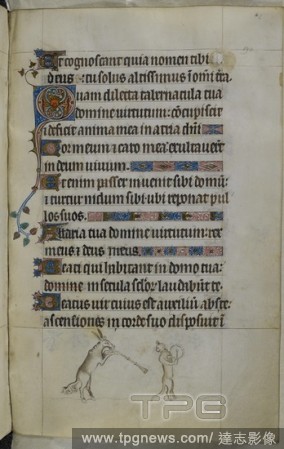 Et cognoscant quia nomen tibi
deus: tu solus altissimus i om̄i t̄ra
Quam dilecta tabernacula tua
domine virtutum: cōcupiscit
⁊ deficit anima mea in atria dn̄i
Cor meum ⁊ caro mea: exultaverūt
in deum vivum.
Et enim passer invenit sibi domū:
⁊ turtur nidum sibi ubi reponat pul
los suos.
Altaria tua domine virtutum: rex
meus ⁊ deus meus.
Beati qui habitant in domo tua
domine: in secula sclōꝝ laudabūt te
Beatus vir cuius est auxiliū abs te:
ascensiones in corde suo disposuit ī
TPG
www.tpgnews.com/達志影像